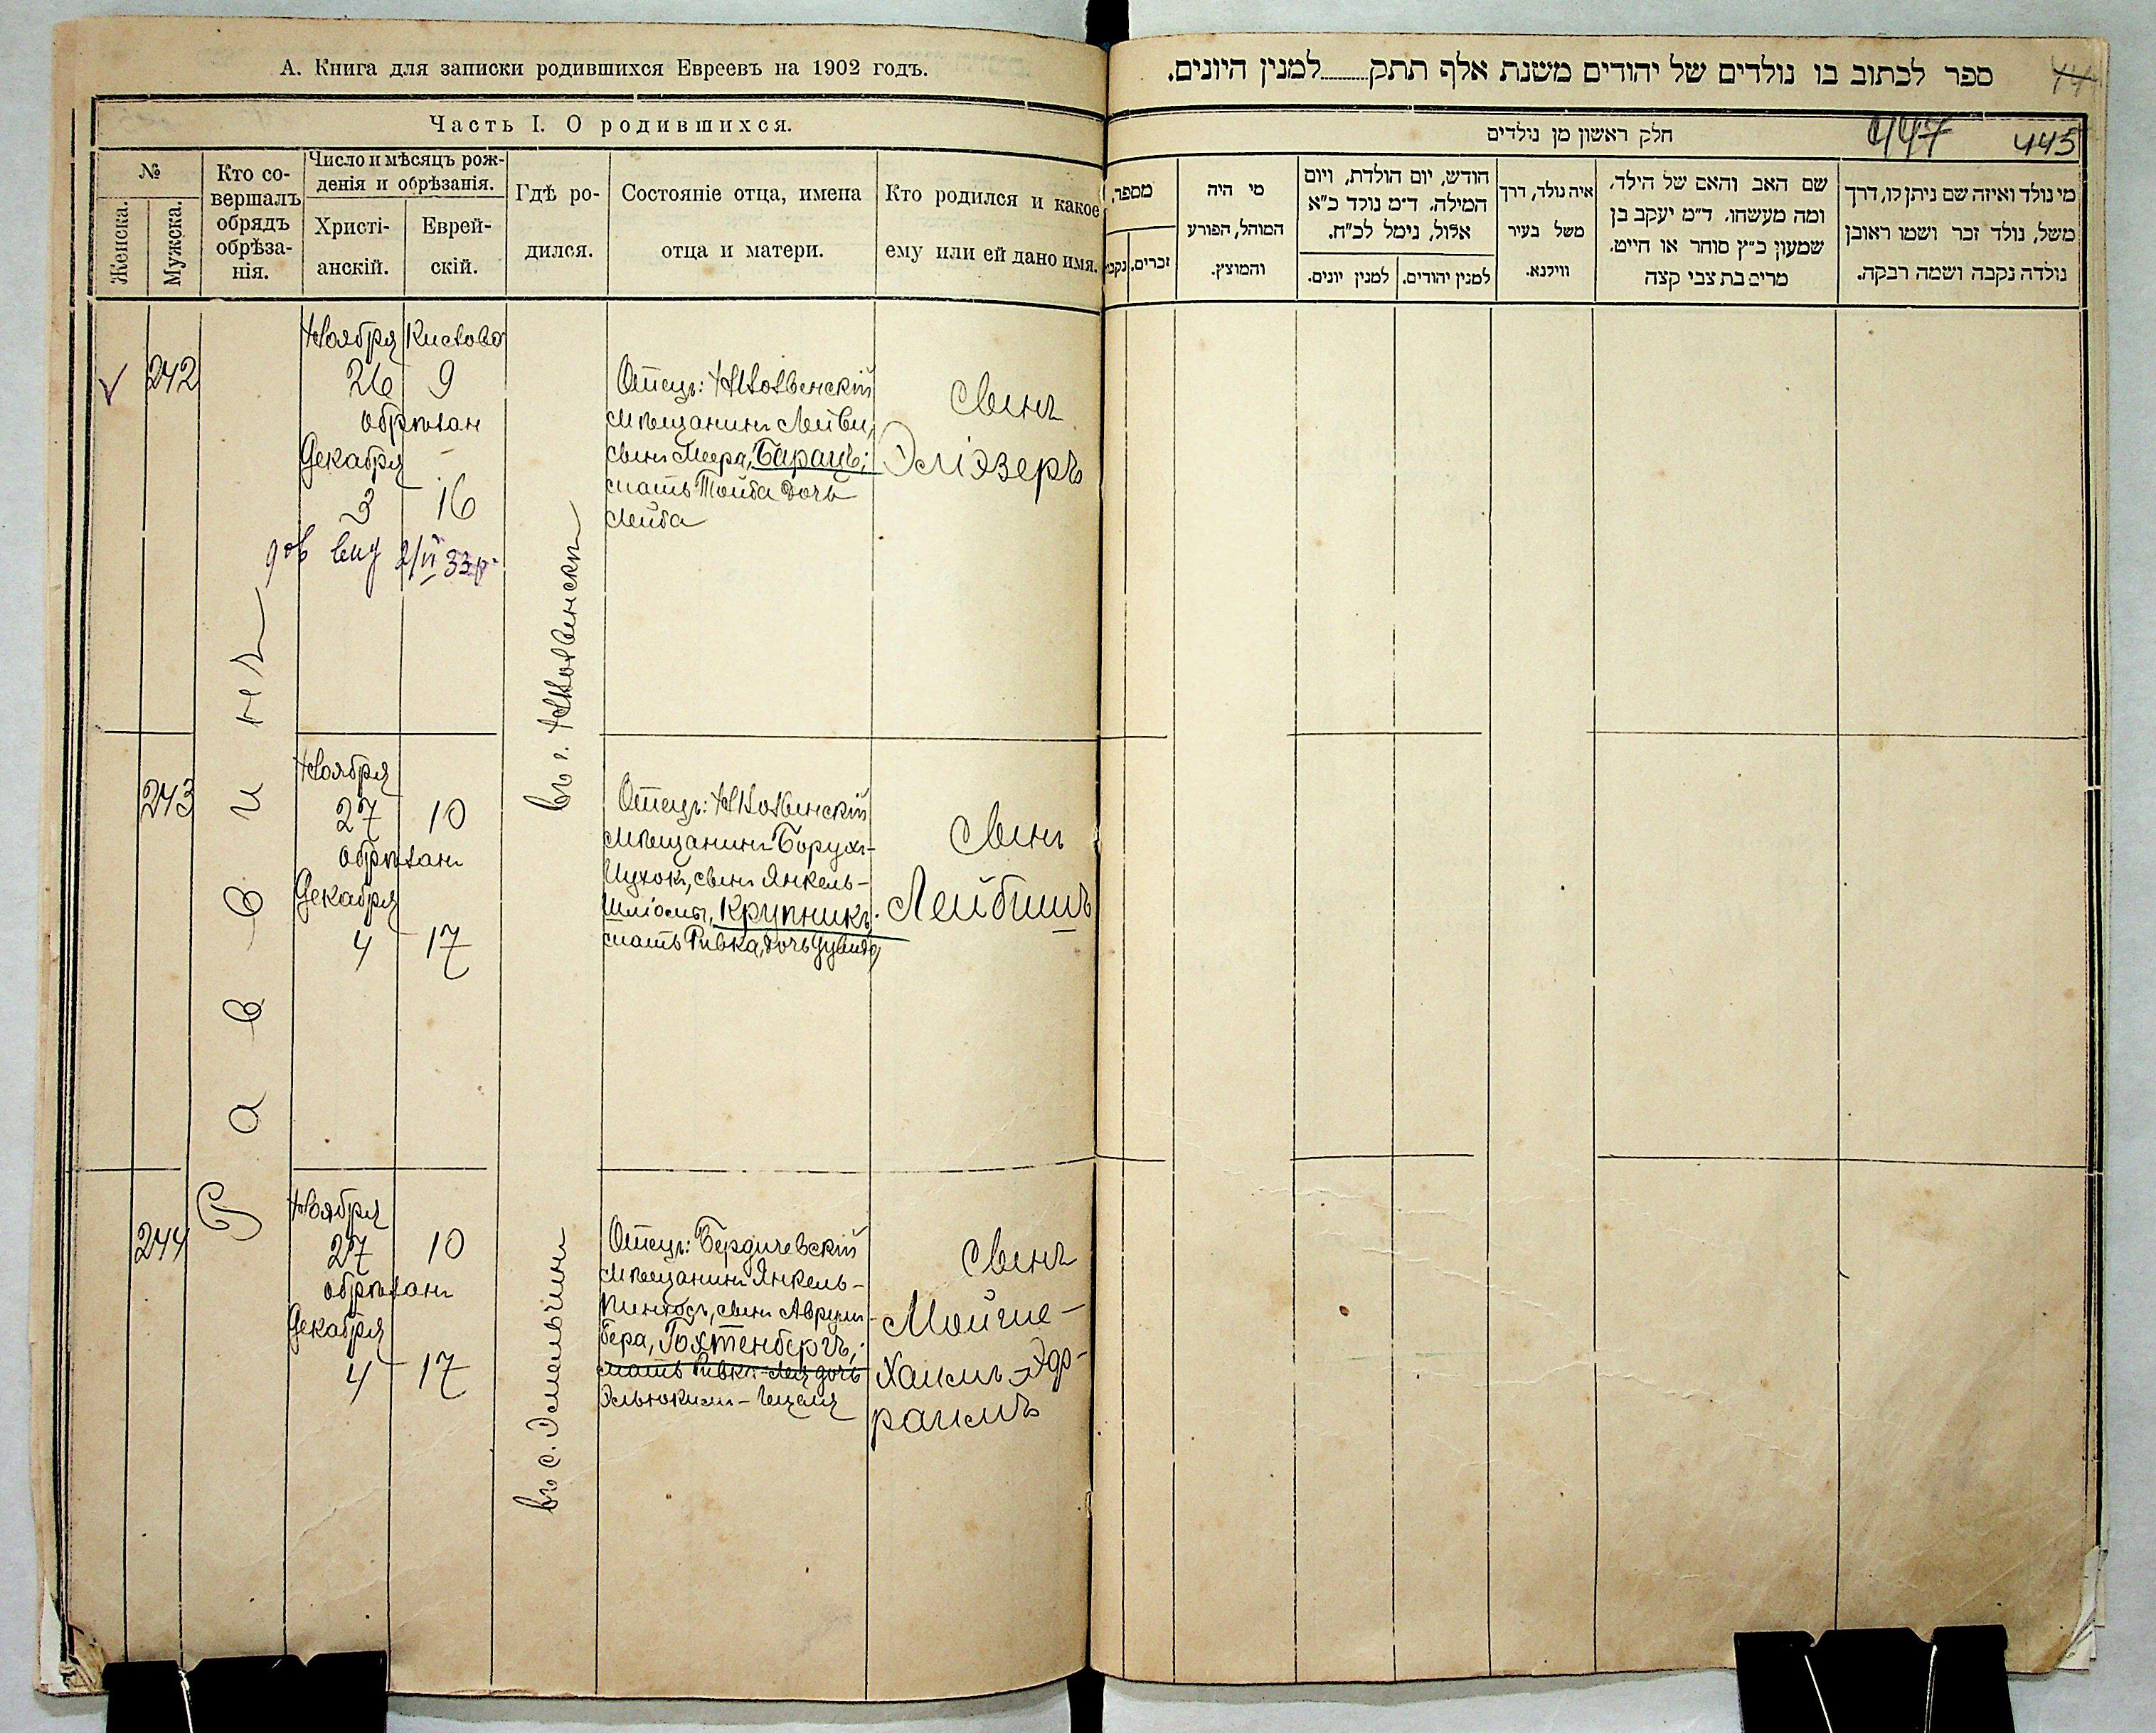 А. Книга для записки родившихся Евреевъ на 1902 годъ.
Часть I. О родившихся.
№
Женска.
Мужска.
Кто со-
вершалъ
обрядъ
обрѣза-
нія.
Число и мѣсяцъ рож-
денія и обрѣзанія.
Христі-
анскій.
Еврей-
скій.
Гдѣ ро-
дился.
Состояніе отца, имена
отца и матери.
Кто родился и какое
ему или ей дано имя.
Раввинъ
242
Ноября Кислова
26 9
обрѣзан
Декабря
3 16
2/VI 33
въ г.
Отецъ:
Мѣщанинъ Лейви,
сынъ Меера, Барацъ;
мать Тойба дочь
Лейба
сынъ
Эліэзеръ
243
Ноября
27 10
обрѣзанъ
Декабря
4 17
Отецъ:
Мѣщанинъ Борухъ-
Ицхокъ, сынъ Янкель-
Шліомы, Крупникъ;
мать Ривка, дочь
сынъ
Лейбишъ
244
Ноября
27 10
обрѣзанъ
Декабря
4 17
въ с. Эмильчинѣ
Отецъ: Бердичевскій
Мѣщанинъ Янкель-
Пинхосъ, сынъ Аврум-
бера, Гохтенбергъ;
мать Ривка-Лея дочь
сынъ
Мойше-
Хаимъ-Эф-
раимъ
ספר לכתוב בו נולדים של יהודים משנת אלף תתק למנין היונים.
חלק ראשון מן נולדים
447 445
מספר.
זכרים.
נקבו
מי היה
המוהל, הפורע
והמוצץ.
חודש, יום הולדת, ויום
המילה. ד״מ נולד כ״א
אלול, נימל לכ״ח.
למנין יונים.
למנין יהודים.
איה נולד, דרך
משל בעיר
ווילנא.
שם האב והאם של הילד,
ומה מעשהו. ד״מ יעקב בן
שמעון כ״ץ סוחר או חייט.
מרים בת צבי קצה
מי נולד ואיזה שם ניתן לו, דרך
משל, נולד זכר ושמו ראובן
נולדה נקבה ושמה רבקה.